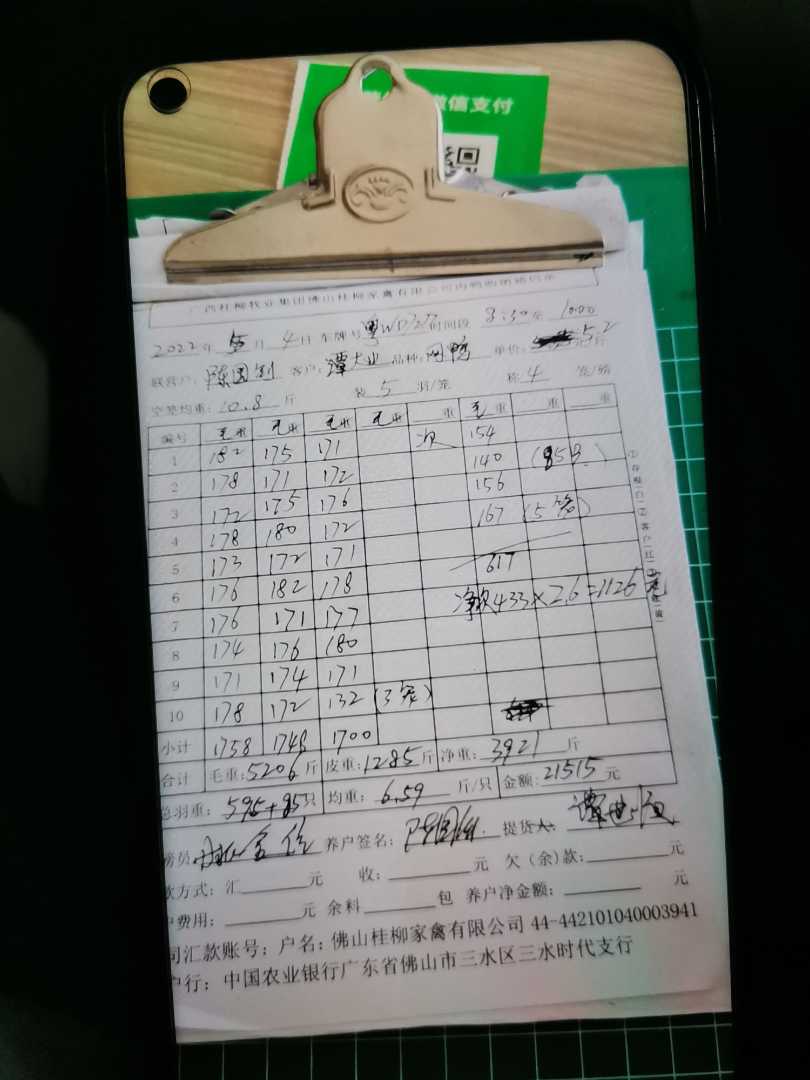 微信支付
广西桂柳牧业集团佛山桂柳家禽有限公司肉鸭
2022年 5月 4日 车牌号 粤WD 时间段 8:30至 10:00
联营户: 客户: 谭大业 品种: 网鸭 单价: 5.2 元/斤
空笼均重: 10.8 斤 装 5 羽/笼 称 4 笼/磅
编号 毛重 毛重 毛重 毛重 重 毛重 重 重
1 182 175 171 次 154
2 178 171 172 140 (85只)
3 172 175 176 156
4 178 180 172 167 (5笼)
5 173 172 171 617
6 176 182 178 净重433×2.6=1126元
7 176 171 177
8 174 176 180
9 171 174 171
10 178 172 132 (3笼)
小计 1758 1748 1700
合计 毛重:5206斤 皮重:1285斤 净重: 3921 斤
总羽重: 595+85只 均重: 6.59 斤/只 金额:21515元
养户签名: 提货人:
款方式: 汇 元 收: 元 欠(余)款: 元
户费用: 元 余料 包 养户净金额: 元
司汇款账号: 户名: 佛山桂柳家禽有限公司 44-442101040003941
户行: 中国农业银行广东省佛山市三水区三水时代支行